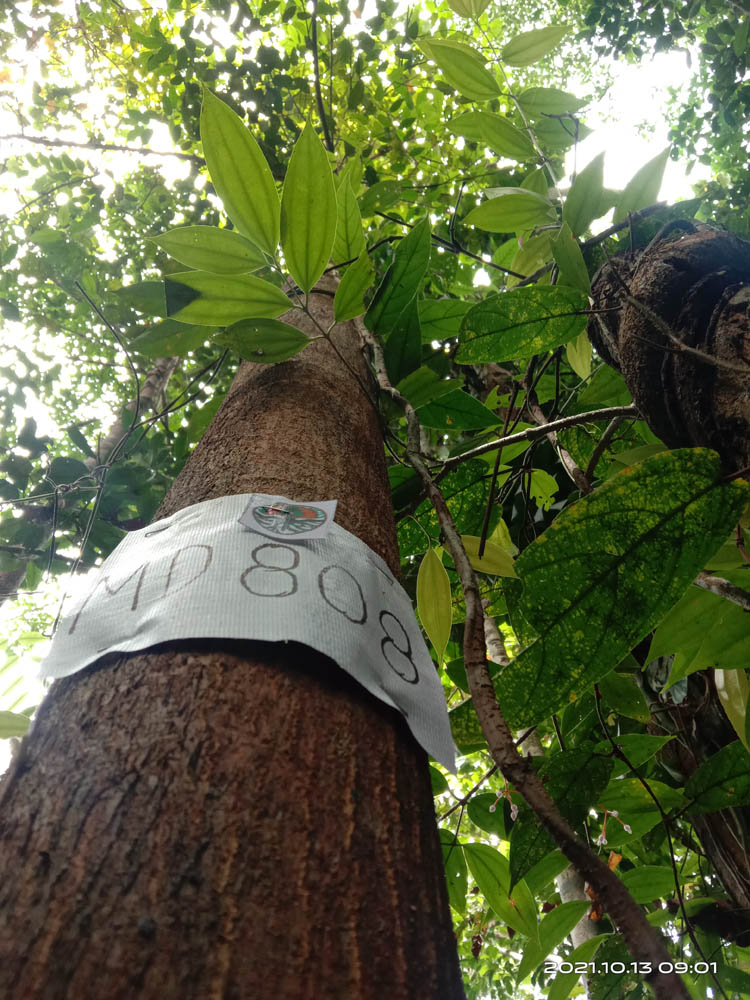 MD 808
2021.10.13 09:01